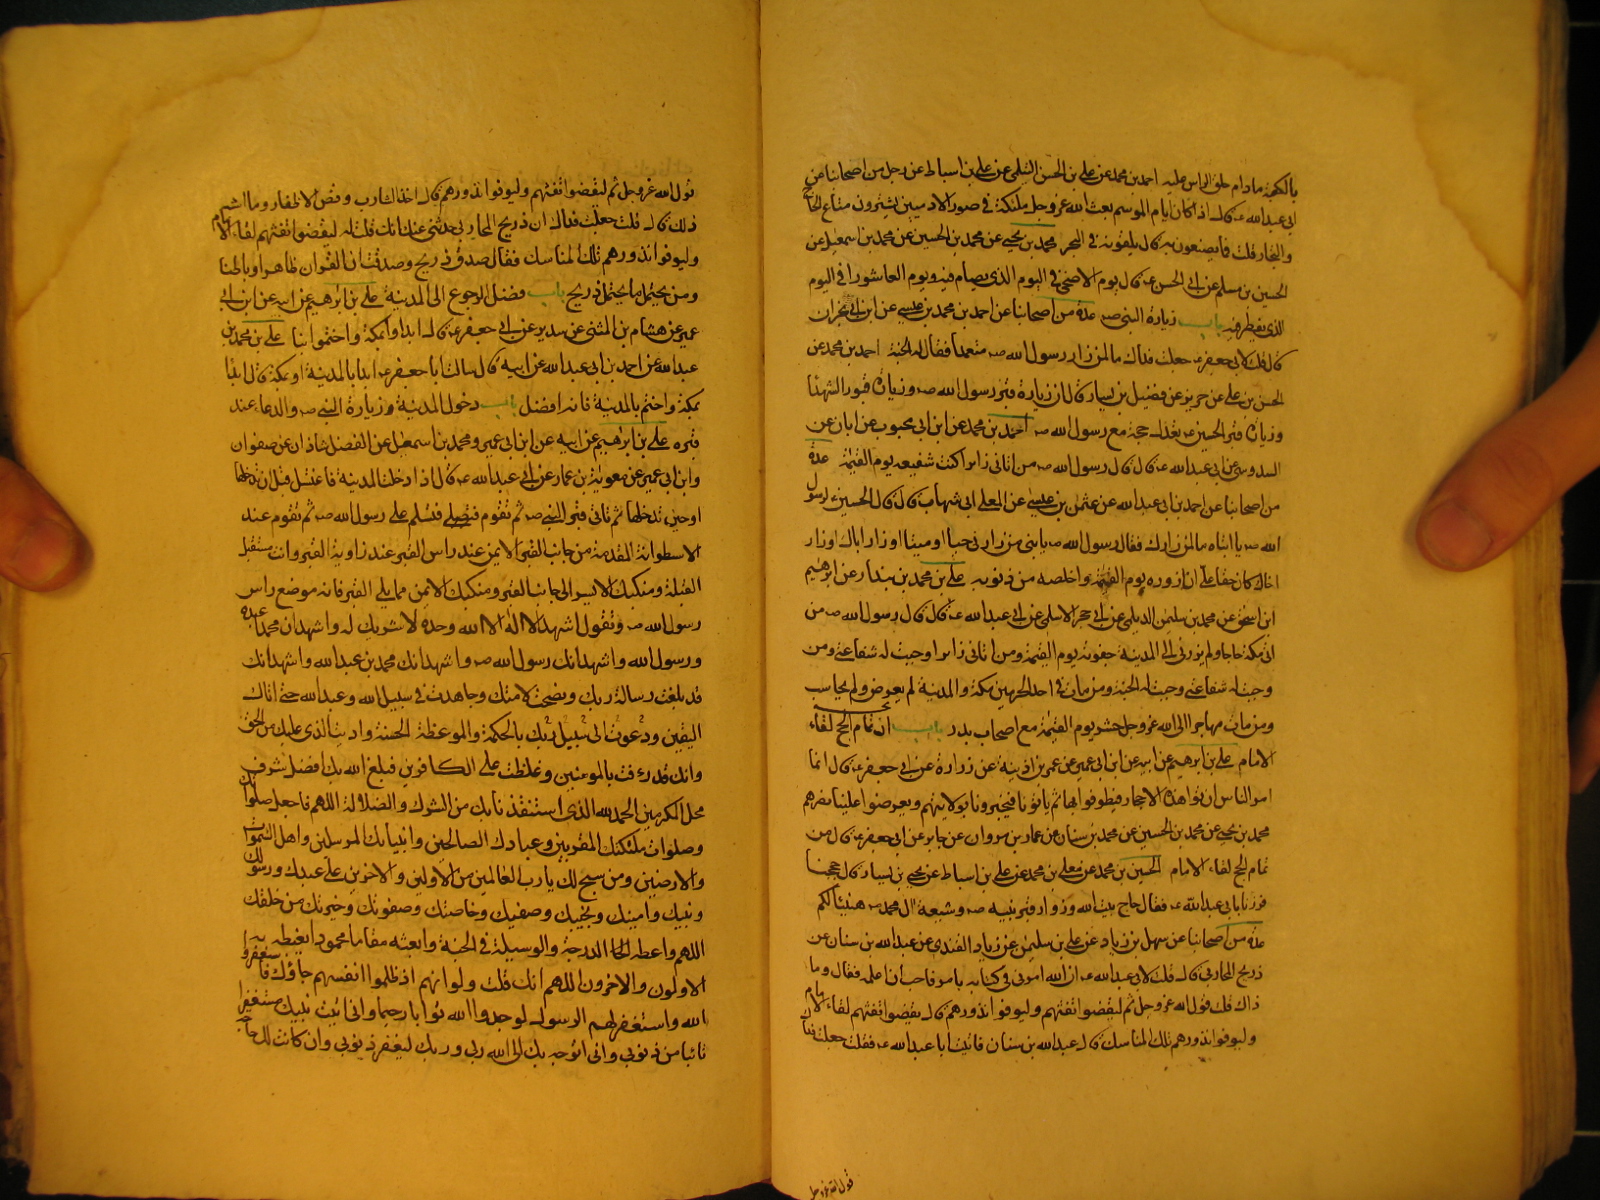 بالكعبة مادام حلق الراس عليه احمد بن محمد عن علي بن الحسن التيملي عن علي بن اسباط عن رجل من اصحابنا عن
ابي عبدالله ع قال اذا كان ايام الموسم بعث الله عز وجل ملئكة في صور الادميين يشترون متاع الحاج
والتجار قلت فما يصنعون به قال يلقونه في البحر محمد بن يحيى عن محمد بن الحسين عن محمد بن اسمعيل عن
الحسين بن مسلم عن ابي الحسن ع قال يوم الاضحى في اليوم الذي يصام فيه ويوم العاشورا في اليوم
الذي يفطر فيه باب زيارة النبي ص عدة من اصحابنا عن احمد بن محمد بن عيسى عن ابن ابي نجران
قال قلت لابي جعفر ع جعلت فداك ما لمن زار رسول الله ص متعمدا فقال له الجنة احمد بن محمد عن
الحسن بن علي عن حريز عن فضيل بن يسار قال ان زيارة قبر رسول الله ص وزيارة قبور الشهدا
وزيارة قبر الحسين ع تعدل حجة مع رسول الله ص احمد بن محمد عن ابن ابي محبوب عن ابان عن
السدوسي عن ابي عبدالله ع قال قال رسول الله ص من اتاني زايرا كنت شفيعه يوم القيمة عدة
من اصحابنا عن احمد بن ابي عبدالله عن عثمن بن عيسى عن المعلى ابي شهاب قال قال الحسين ع لرسول
الله ص يا ابتاه ما لمن زارك فقال رسول الله ص يا بني من زارني حيا او ميتا او زار اباك او زار
اخاك كان حقا علي ان ازوره يوم القيمة واخلصه من ذنوبه علي بن محمد بن بندار عن ابرهيم
ابن اسحق عن محمد بن سليمن الديلمي عن ابي حجر الاسلمي عن ابي عبدالله ع قال قال رسول الله ص من
اتى مكة حاجا ولم يزرني الى المدينة جفوته يوم القيمة ومن اتاني زايرا وجبت له شفاعتي ومن
وجبت له شفاعتي وجبت له الجنة ومن مات في احد الحرمين مكة والمدينة لم يعرض ولم يحاسب
ومن مات مهاجرا الى الله عز وجل حشر يوم القيمة مع اصحاب بدر باب ان تمام الحج لقاء
الامام علي بن ابرهيم عن ابيه عن ابن ابي عمير عن عمر بن اذينة عن زرارة عن ابي جعفر ع قال انما
امر الناس ان يؤا هذه الاحجار فيطوفوا بها ثم ياتونا فيخبرونا بولايتهم ويعرضوا علينا نصرهم
محمد بن يحيى عن محمد بن الحسين عن محمد بن سنان عن عمار بن مروان عن جابر عن ابي جعفر ع قال من
تمام الحج لقاء الامام الحسين بن محمد عن معلى بن محمد عن علي بن اسباط عن يحيى بن يسار قال حججنا
فمررنا بابي عبدالله ع فقال حاج بيت الله وزوار قبر نبيه ص وشيعة ال محمد ص هنيئا لكم
عدة من اصحابنا عن سهل بن زياد عن علي بن سليمن عن زياد القندي عن عبدالله بن سنان عن
ذريح المحاربي قال قلت لابي عبدالله ع ان الله امرني في كتابه بامر فاحب ان اعلمه فقال وما
ذاك قلت قول الله عز وجل ثم ليقضوا تفثهم وليوفوا نذورهم قال ليقضوا تفثهم لقاء الامام
وليوفوا نذورهم تلك المناسك قال عبدالله بن سنان فاتيت ابا عبدالله ع فقلت جعلت فداك
قول الله عز وجل
قول الله عز وجل ثم ليقضوا تفثهم وليوفوا نذورهم قال اخذ الشارب وقص الاظفار وما اشبه
ذلك قال قلت جعلت فداك ان ذريح المحاربي حدثني عنك انك قلت له ليقضوا تفثهم لقاء الامام
وليوفوا نذورهم تلك المناسك فقال صدق ذريح وصدقت ان للقران ظاهرا وباطنا
ومن يحتمل ما يحتمل ذريح باب فضل الرجوع الى المدينة علي بن ابرهيم عن ابيه عن ابن ابي
عمير عن هشام بن المثنى عن سدير عن ابي جعفر ع قال ابداوا بمكة واختموا بنا علي بن محمد بن
عبدالله عن احمد بن ابي عبدالله عن ابيه قال سالت ابا جعفر ع ابدا بالمدينة او بمكة قال ابدا
بمكة واختم بالمدينة فانه افضل باب دخول المدينة وزيارة النبي ص والدعاء عند
قبره علي بن ابرهيم عن ابيه عن ابن ابي عمير ومحمد بن اسمعيل عن الفضل بن شاذان عن صفوان
وابن ابي عمير عن معوية بن عمار عن ابي عبدالله ع قال اذا دخلت المدينة فاغتسل قبل ان تدخلها
او حين تدخلها ثم تاتي قبر النبي ص ثم تقوم فتسلم على رسول الله ص ثم تقوم عند
الاسطوانة المقدمة من جانب القبر الايمن عند راس القبر عند زاوية القبر وانت مستقبل
القبلة ومنكبك الايسر الى جانب القبر ومنكبك الايمن مما يلي القبر فانه موضع راس
رسول الله ص وتقول اشهد ان لا اله الا الله وحده لا شريك له واشهد ان محمدا عبده
ورسول الله واشهد انك رسول الله ص واشهد انك محمد بن عبدالله واشهد انك
قد بلغت رسالة ربك ونصحت لامتك وجاهدت في سبيل الله وعبدالله حتى اتاك
اليقين ودعوت الى سبيل ربك بالحكمة والموعظة الحسنة واديت الذي عليك من الحق
وانك قد رؤفت بالمومنين وغلظت على الكافرين فبلغ الله بك افضل شرف
محل المكرمين الحمد لله الذي استنقذنا بك من الشرك والضلالة اللهم فاجعل صلواتك
وصلوات ملئكتك المقربين وعبادك الصالحين وانبيائك المرسلين واهل السموات
والارضين ومن سبح لك يا رب العالمين من الاولين والاخرين على عبدك ورسولك
ونبيك وامينك ونجيبك وصفيك وخاصتك وصفوتك وخيرتك من خلقك
اللهم واعطه الدرجة والوسيلة في الجنة وابعثه مقاما محمودا يغبطه به
الاولون والاخرون اللهم انك قلت ولو انهم اذ ظلموا انفسهم جاؤك فاستغفروا
الله واستغفر لهم الرسول لوجدوا الله توابا رحيما واني اتيت نبيك مستغفرا
تائبا من ذنوبي واني اتوجه بك الى الله ربي وربك ليغفر ذنوبي وان كانت لك حاجة